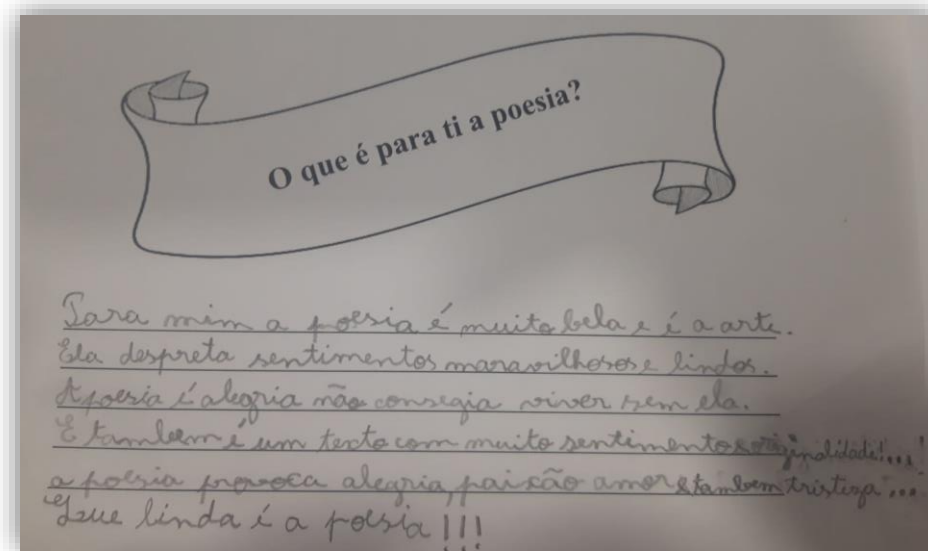 O que é para ti a poesia?
Para mim a poesia é muito bela e é a arte.
Ela despreta sentimentos maravilhosos e lindos.
A poesia é alegria não consegia viver sem ela.
E tambem é um texto com muito sentimento e originalidade!...!
a poesia provoca alegria, paixão amor e tambem tristeza...
Que linda é a poesia !!!